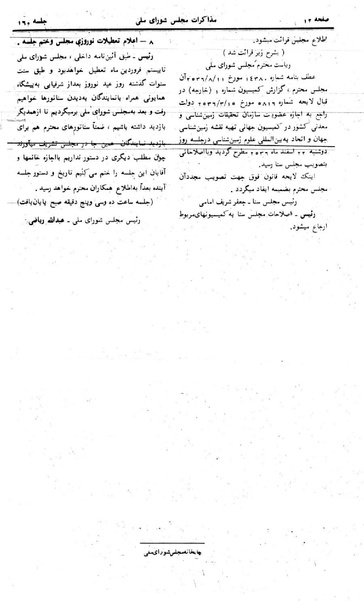 صفحه ۱۲
مذاکرات مجلس شورای ملی
جلسه ۱۶۰
اطلاع مجلس قرائت میشود.
( بشرح زیر قرائت شد )
ریاست محترم مجلس شورای ملی
عطف بنامه شماره ۱۴۳۸۰ مورخ ۲۵۳۶/۸/۱۱ آن
مجلس محترم ، گزارش کمیسیون شماره ۱ (خارجه) در
قبال لایحه شماره ۵۸۱۶ مورخ ۲۵۳۶/۳/۱۵ دولت
راجع به اجازه عضویت سازمان تحقیقات زمین‌شناسی و
معدنی کشور در کمیسیون جهانی تهیه نقشه زمین‌شناسی
جهان و اتحادیه بین‌المللی علوم زمین‌شناسی درجلسه روز
دوشنبه ۲۲ اسفند ماه ۲۵۳۶ مطرح گردید و بااصلاحاتی
بتصویب مجلس سنا رسید.
اینک لایحه قانون فوق جهت تصویب مجددآن
مجلس محترم بضمیمه ایفاد میگردد .
رئیس مجلس سنا - جعفر شریف امامی
رئیس - اصلاحات مجلس سنا به کمیسیونهای مربوط
ارجاع میشود.
۸ - اعلام تعطیلات نوروزی مجلس وختم جلسه .
رئیس - طبق آئین‌نامه داخلی ، مجلس شورای ملی
تابیستم فروردین ماه تعطیل خواهدبود و طبق سنت
سنوات گذشته روز عید نوروز بعداز شرفیابی به‌پیشگاه
همایونی همراه بانمایندگان به‌دیدن سناتورها خواهیم
رفت و بعد به‌مجلس شورای ملی برمیگردیم تا ازهمدیگر
بازدید داشته باشیم ، ضمناً سناتورهای محترم هم برای
بازدید نمایندگان همین جا در مجلس تشریف میآورند
چون مطلب دیگری در دستور نداریم بااجازه خانمها و
آقایان این جلسه را ختم می‌کنیم تاریخ و دستور جلسه
آینده بعداً به‌اطلاع همکاران محترم خواهد رسید .
(جلسه ساعت ده وسی وپنج دقیقه صبح پایان‌یافت)
رئیس مجلس شورای ملی - عبدالله ریاضی
چاپخانه مجلس شورای ملی